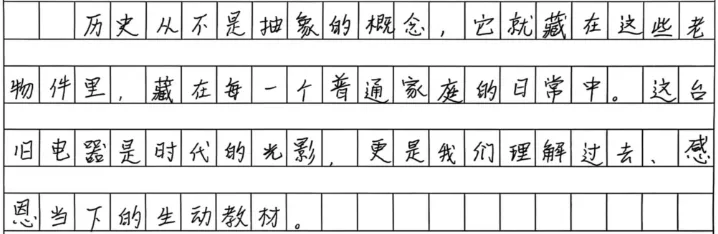 历史从不是抽象的概念，它就藏在这些老
物件里，藏在每一个普通家庭的日常中。这台
旧电器是时代的光影，更是我们理解过去、感
恩当下的生动教材。